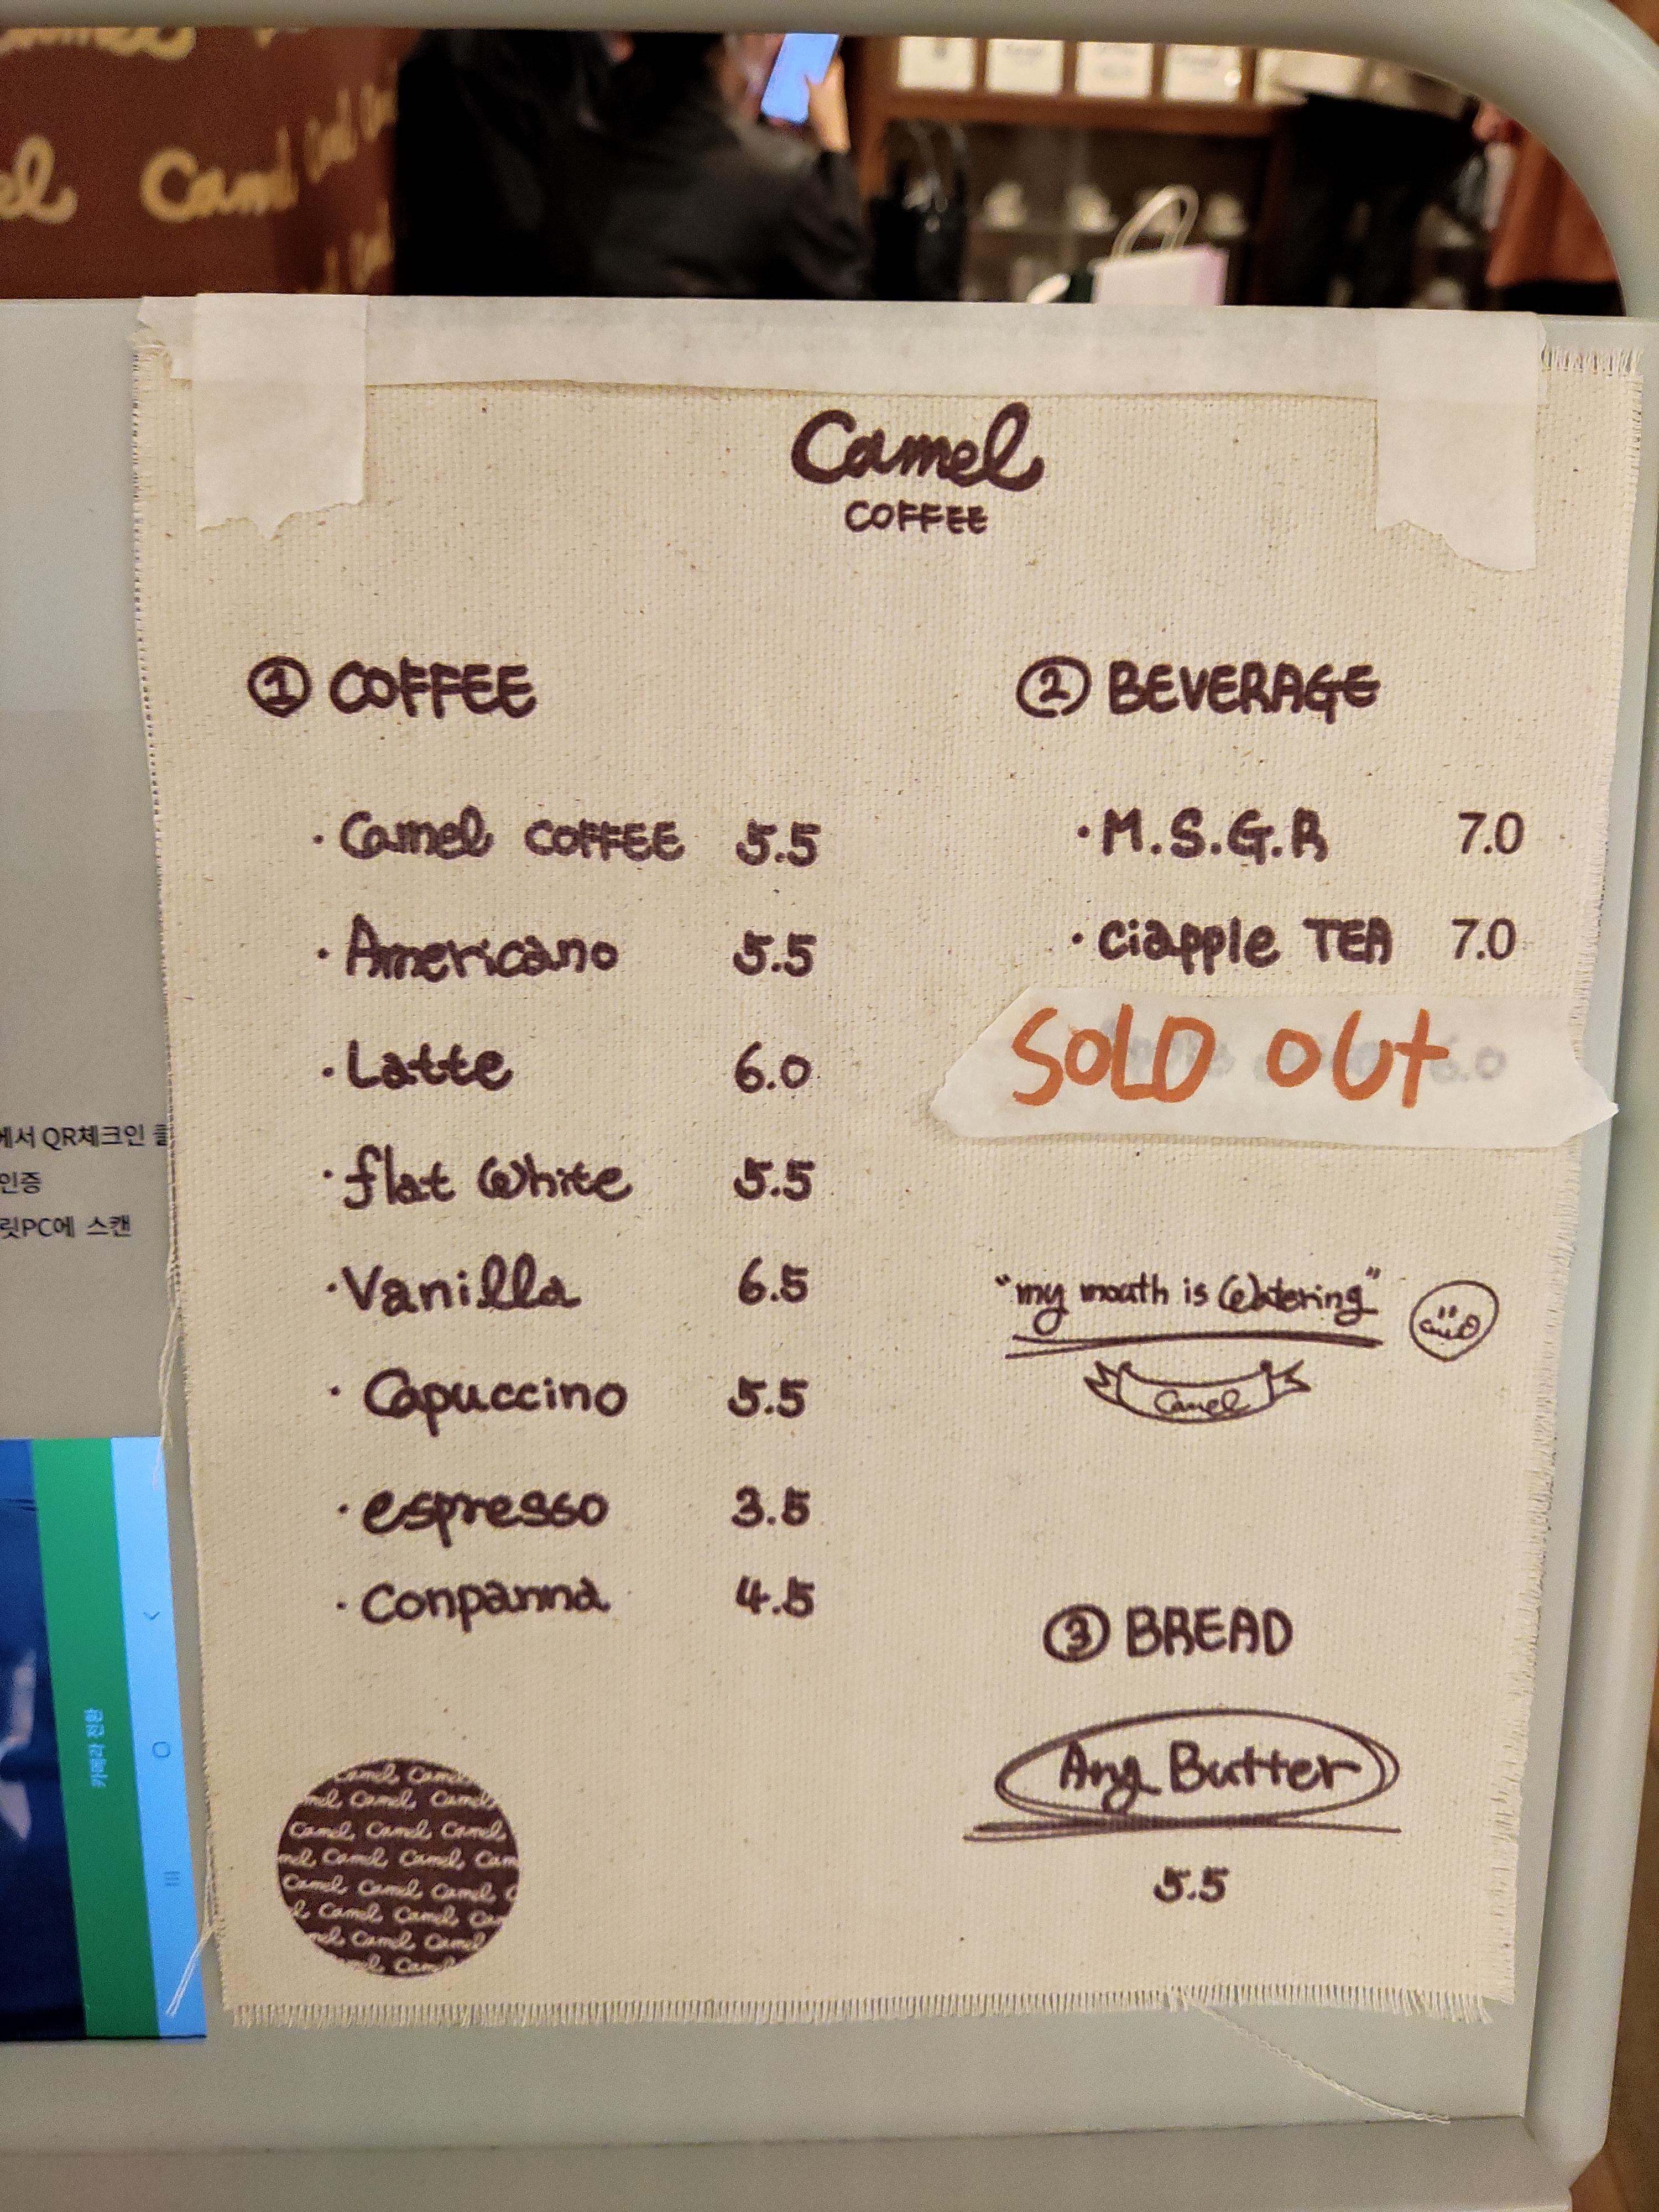 Camel
Camel
COFFEE
① COFFEE
· Camel COFFEE 5.5
· Americano 5.5
· Latte 6.0
· flat white 5.5
· Vanilla 6.5
· Capuccino 5.5
· espresso 3.5
· Conpanna 4.5
② BEVERAGE
· M.S.G.R 7.0
· ciapple TEA 7.0
SOLD OUT 6.0
"my mouth is watering"
Camel
③ BREAD
Ang Butter
5.5
에서 QR체크인
인증
릿PC에 스캔
카메라 전환
Camel Camel
Camel Camel
Camel Camel Camel
Camel Camel
Camel Camel
Camel Camel
Camel Camel
Camel